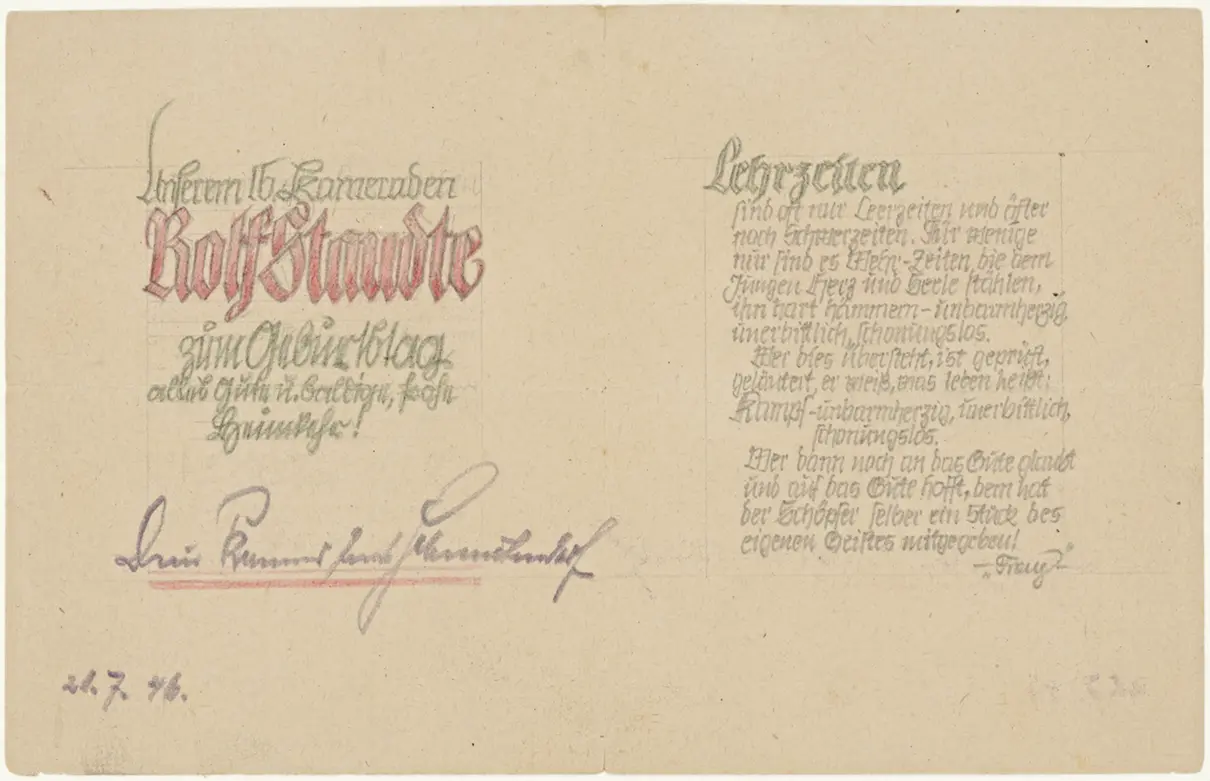 Unserem lb. Kameraden
Rolf Staudte
zum Geburtstag
alles Gute u. baldige, frohe
Heimkehr!
Dein
21. 7. 46.
Lehrzeiten
sind oft nur Leerzeiten und öfter
noch Schwerzeiten. Für wenige
nur sind es Mehr-Zeiten, die dem
Jungen Herz und Seele stählen,
ihn hart hämmern - unbarmherzig
unerbittlich, schonungslos.
Wer dies übersteht, ist geprüft,
geläutert, er weiß, was leben heißt:
Kampf - unbarmherzig, unerbittlich,
schonungslos.
Wer dann noch an das Gute glaubt
und auf das Gute hofft, dem hat
der Schöpfer selber ein Stück des
eigenen Geistes mitgegeben!